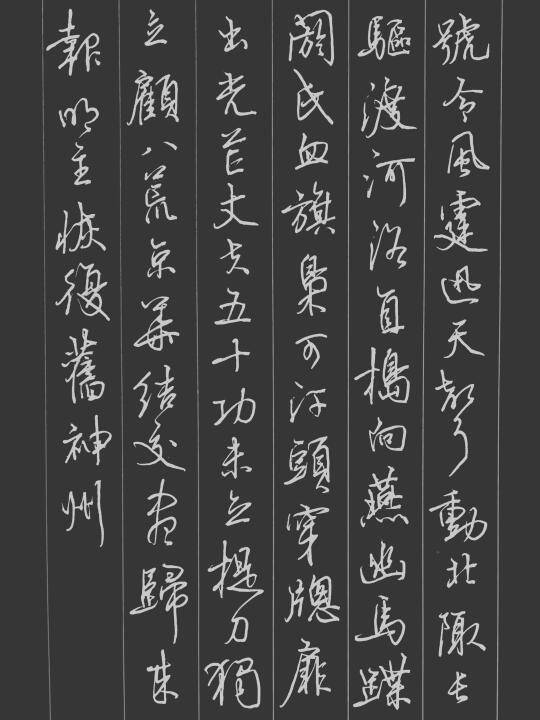 號令風霆迅天聲動北陬長
驅渡河洛直搗向燕幽馬蹀
閼氏血旗梟可汗頭穿牕扉
出光芒丈夫五十功未立提刀獨
立顧八荒京華結交盡歸來
報明主恢復舊神州